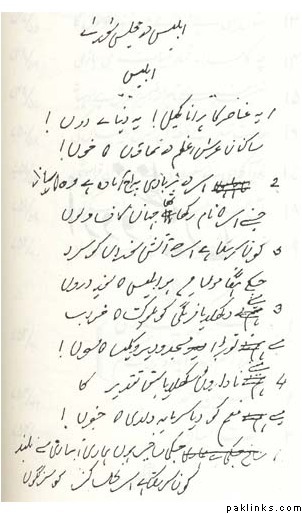 ابلیس کی مجلس شوریٰ
ابلیس
یہ عناصر کا پرانا کھیل! یہ دنیائے دوں!
ساکنان عرش اعظم کی تمناؤں کا خوں!
2 اس کی بربادی پہ آج آمادہ ہے وہ کارساز
جس نے اس کا نام رکھا تھا جہان کاف و نوں
5 کون کر سکتا ہے اس کی آتش سوزاں کو سرد
جس کے ہنگاموں میں ہو ابلیس کا سوز دروں
3 میں نے دکھلایا فرنگی کو ملوکیت کا خواب
میں نے توڑا مسجد و دیر و کلیسا کا فسوں!
4 میں نے ناداروں کو سکھلایا سبق تقدیر کا
میں نے منعم کو دیا سرمایہ داری کا جنوں!
جس کی شاخیں ہوں ہماری آبیاری سے بلند
کون کر سکتا ہے اس نخل کہن کو سرنگوں
paklinks.com